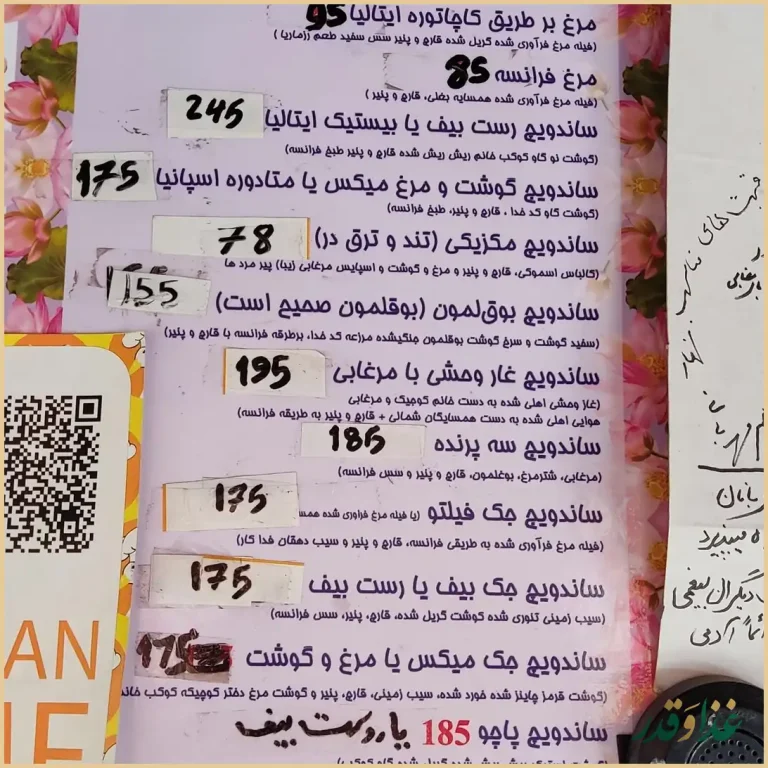 مرغ بر طریق کاچاتوره ایتالیا 95
(فیله مرغ فرآوری شده گریل شده قارچ و پنیر سس سفید طعم رزماریا)
مرغ فرانسه 85
(فیله مرغ فرآوری شده همسایه بغلی، قارچ و پنیر)
ساندویچ رست بیف یا بیستیک ایتالیا 245
(گوشت نو گاو کوکب خانم ریش ریش شده قارچ و پنیر طبخ فرانسه)
ساندویچ گوشت و مرغ میکس یا متادوره اسپانیا 175
(گوشت گاو کد خدا، قارچ و پنیر، طبخ فرانسه)
ساندویچ مکزیکی (تند و ترق در) 78
(کالباس اسموکی، قارچ و پنیر و مرغ و گوشت و اسپایس مرغابی (یبا) پیر مرد ها
ساندویچ بوق‌لمون (بوقلمون صحیح است) 155
(سفید گوشت و سرخ گوشت بوقلمون جنگیشده مزرعه کد خدا، برطرقه فرانسه با قارچ و پنیر)
ساندویچ غار وحشی با مرغابی 195
(غاز وحشی اهلی شده به دست خانم کوچیک و مرغابی
هوایی اهلی شده به دست همسایگان شمالی + قارچ و پنیر به طریقه فرانسه)
ساندویچ سه پرنده 185
(مرغابی، شترمرغ، بوغلمون، قارچ و پنیر و سس فرانسه)
ساندویچ جک فیلتو (یا فیله مرغ فراوری شده همس 175
(فیله مرغ فرآوری شده به طریقی فرانسه، قارچ و پنیر و سیب دهقان فدا کار)
ساندویچ جک بیف یا رست بیف 175
(سیب زمینی تنوری شده گوشت گریل شده، قارچ، پنیر، سس فرانسه)
ساندویچ جک میکس یا مرغ و گوشت 175
(گوشت قرمز چاینز شده خورد شده، سیب زمینی، قارچ، پنیر و گوشت مرغ دختر کوچیکه کوکب خانم
ساندویچ پاچو 185 یا روست بیف
AN
IE
غذا وَ قدر